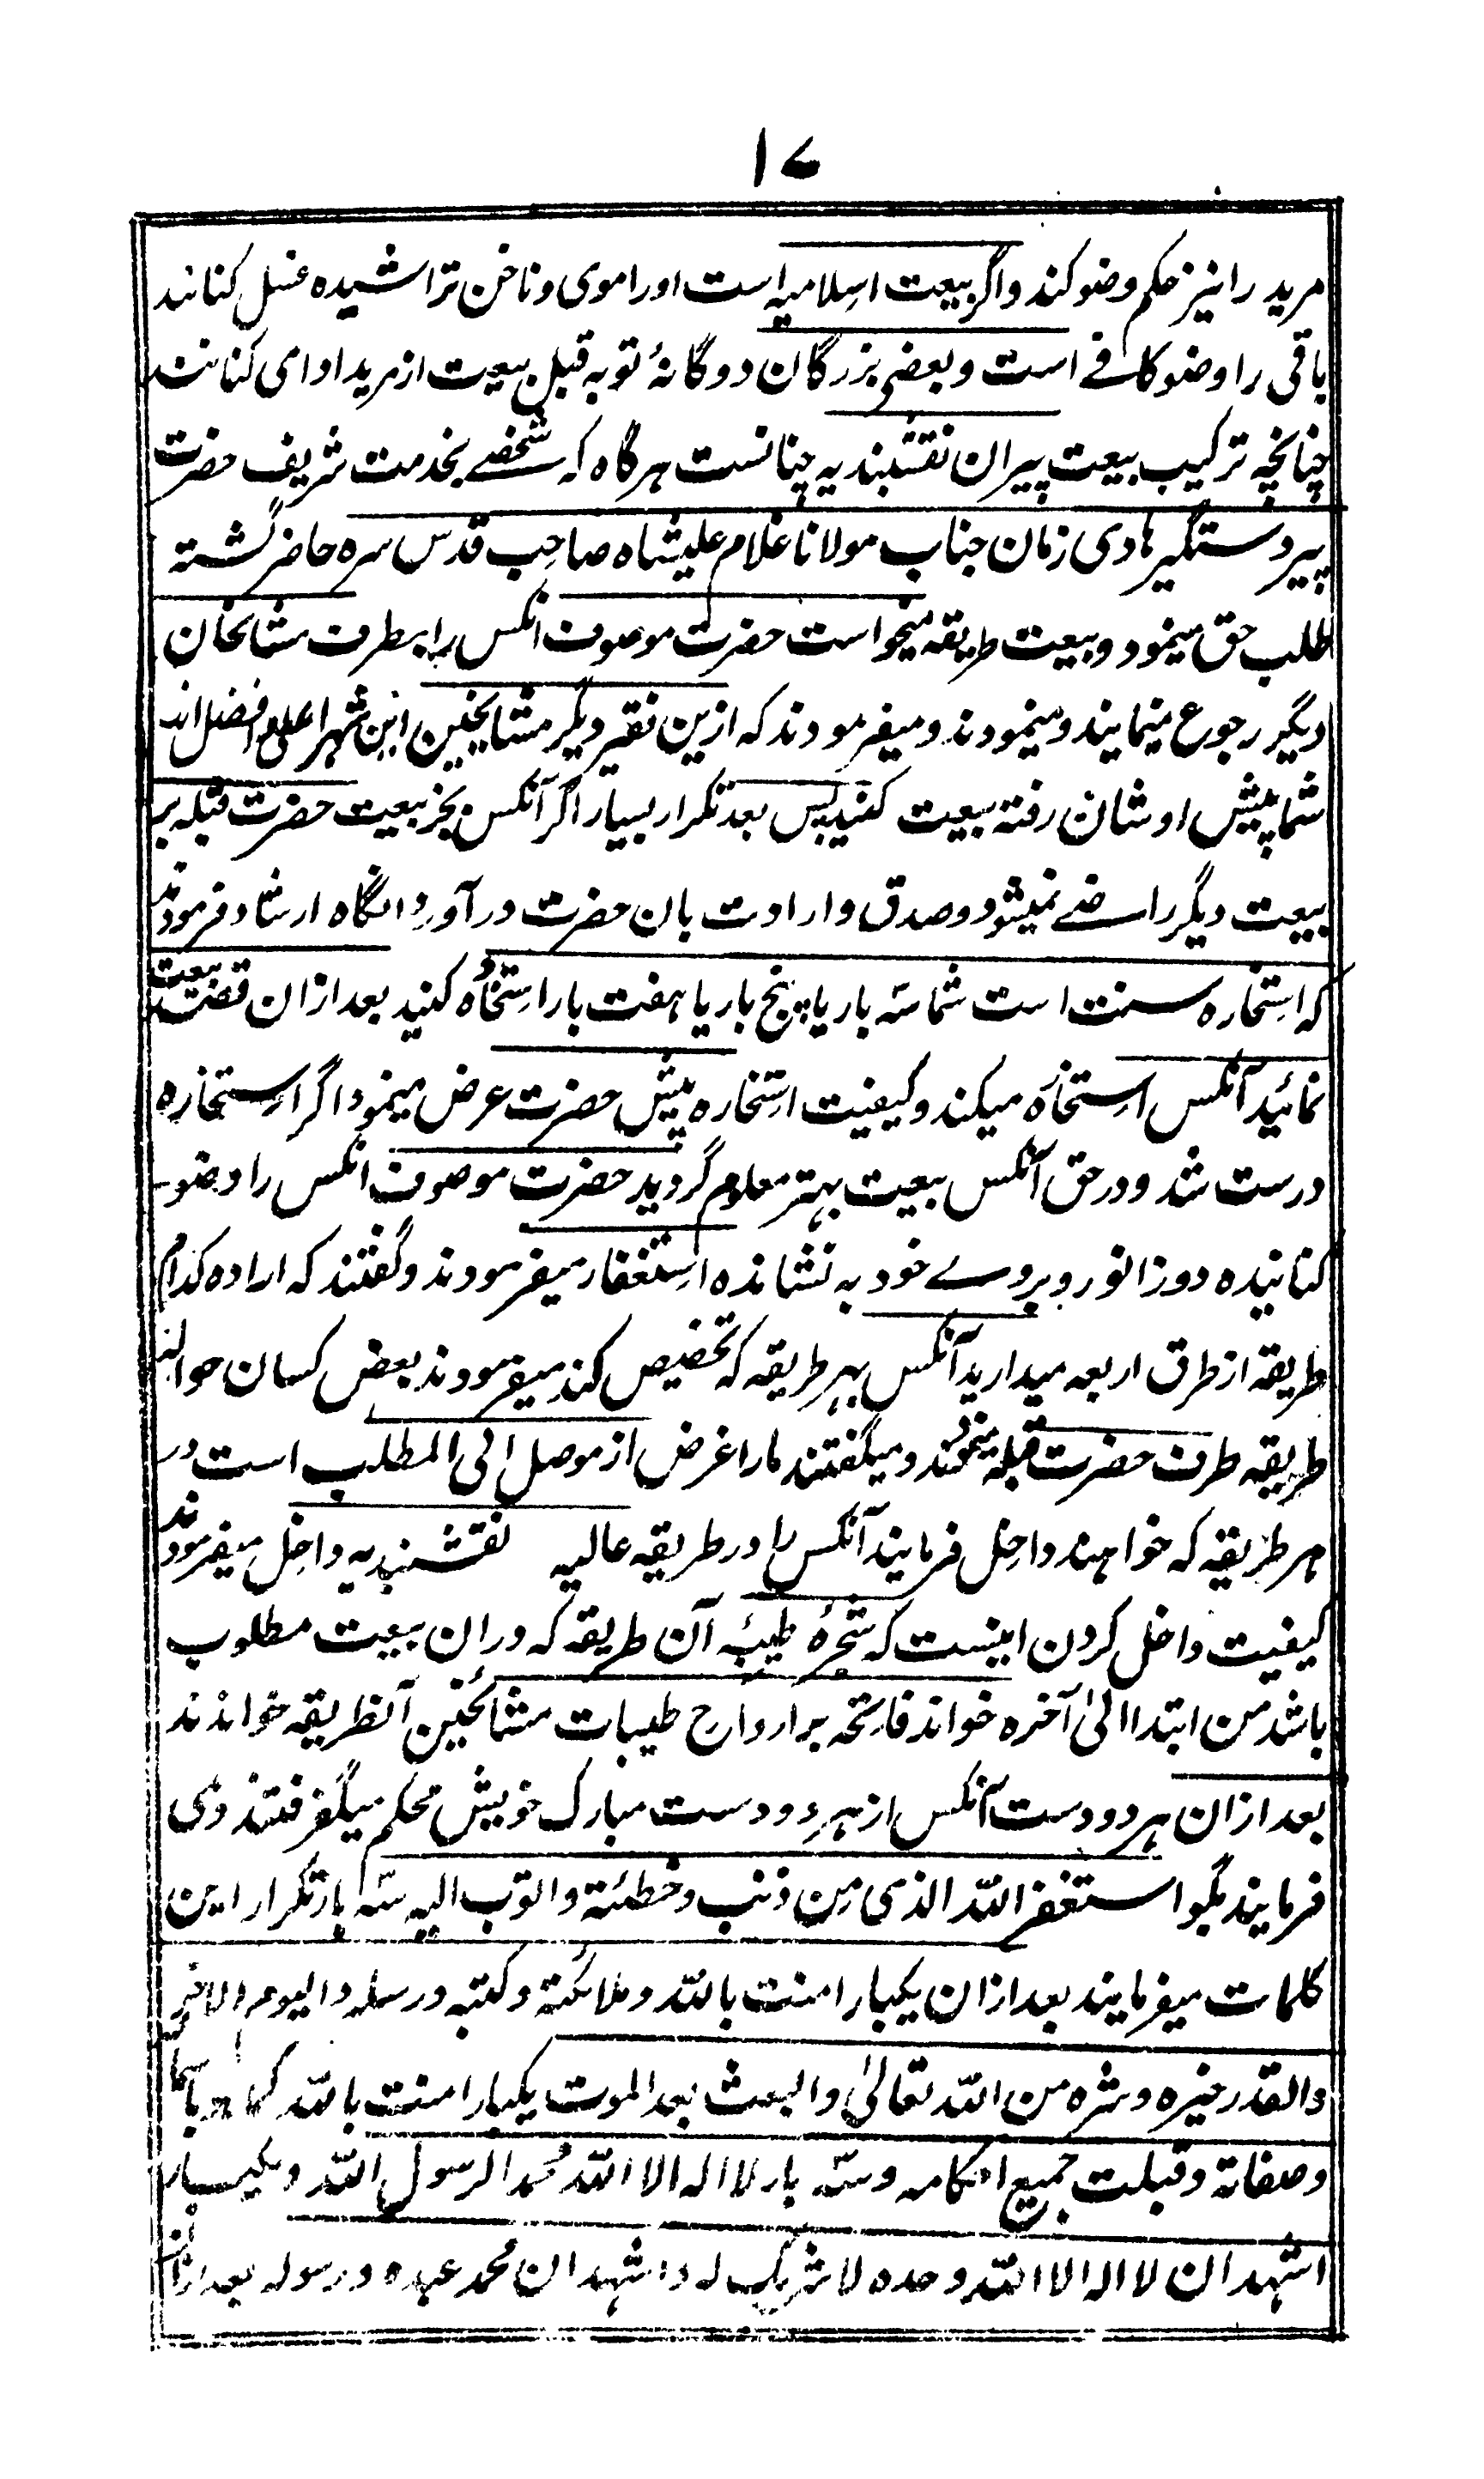 ۱۷
مرید را نیز حکم وضو کند و اگر بیعت اسلامیه است او را موی و ناخن تراشیده غسل کنانند
باقی را وضو کافے است و بعضی بزرگان دوگانهٔ توبه قبل بیعت از مرید ادا می کنانند
چنانچه ترکیب بیعت پیران نقشبندیه چنانست هرگاه که شخصے بخدمت شریف حضرت
پیر دستگیر هادی زمان جناب مولانا غلام علیشاه صاحب قدس سره حاضر گشته
طلب حق مینمود و بیعت طریقه میخواست حضرت موصوف انکس را بطرف مشائخان
دیگر رجوع مینمایند و مینمودند و میفرمودند که ازین فقیر دیگر مشایخین این شهر اعلی و افضل اند
شما پیش اوشان رفته بیعت کنید پس بعد تکرار بسیار اگر آنکس بجز بیعت حضرت قبله بر
بیعت دیگر راضے نمیشود و صدق و ارادت بان حضرت در آورد انگاه ارشاد فرمودند
که استخاره سنت است شما سه بار یا پنج بار یا هفت بار استخاره کنید بعد ازان قصد بیعت
نمائید آنکس استخاره میکند و کیفیت استخاره پیش حضرت عرض مینمود اگر استخاره
درست شد و در حق آنکس بیعت بهتر معلوم گردید حضرت موصوف انکس را وضو
کنانیده دوزانو روبروے خود به نشانده استغفار میفرمودند و گفتند که اراده کدام
طریقه از طرق اربعه میدارید آنکس بهر طریقه که تخصیص کند میفرمودند بعض کسان حواله
طریقه طرف حضرت قبله مینمودند و میگفتند مارا غرض از موصل الی المطلب است در
هر طریقه که خواهند داخل فرمایند آنکس را در طریقه عالیه نقشبندیه داخل میفرمودند
کیفیت داخل کردن اینست که شجرهٔ طیبهٔ آن طریقه که دران بیعت مطلوب
باشد من ابتدا الیٰ آخره خواند فاتحه بر ارواح طیبات مشائخین آنطریقه خواندند
بعد ازان هر دو دست آنکس از هر دو دست مبارک خویش محکم میگرفتند و می
فرمایند بگو استغفر الله الذی من ذنب و خطئة و اتوب الیه سه بار تکرار این
کلمات میفرمایند بعد ازان یکبار امنت بالله و ملائکته و کتبه و رسله و الیوم الاخر
و القدر خیره و شره من الله تعالیٰ و البعث بعد الموت یکبار امنت بالله کما هو باسمائه
و صفاته و قبلت جمیع احکامه و سه بار لا اله الا الله محمد الرسول الله و یکبار
اشهد ان لا اله الا الله وحده لا شریک له و اشهد ان محمد عبده و رسوله بعد ازان